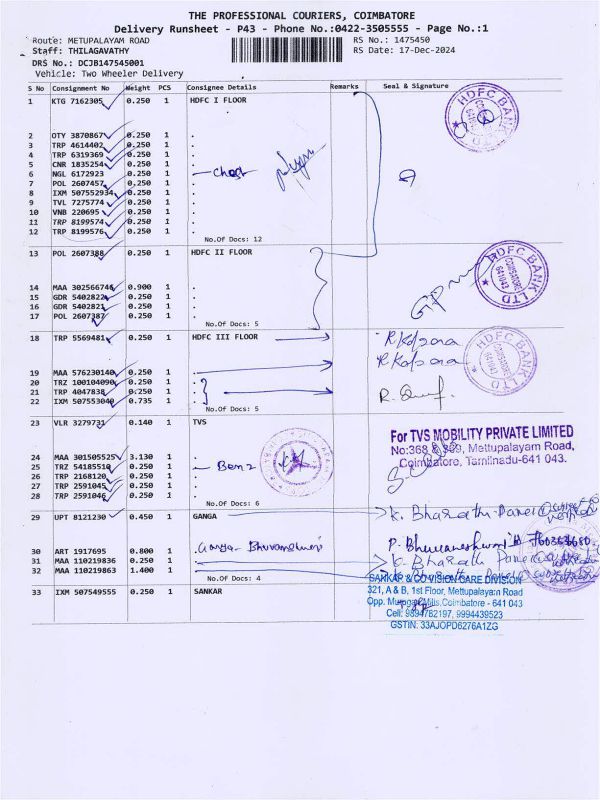 THE PROFESSIONAL COURIERS, COIMBATORE
Delivery Runsheet - P43 - Phone No.:0422-3505555 - Page No.:1
Route: METUPALAYAM ROAD RS No.: 1475450
Staff: THILAGAVATHY RS Date: 17-Dec-2024
DRS No.: DCJB147545001
Vehicle: Two Wheeler Delivery
S No Consignment No Weight PCS Consignee Details Remarks Seal & Signature
1 KTG 7162305 0.250 1 HDFC I FLOOR
HDFC BANK LTD
2 OTY 3870867 0.250 1 .
3 TRP 4614402 0.250 1 .
4 TRP 6319369 0.250 1 .
5 CNR 1835254 0.250 1 .
6 NGL 6172923 0.250 1 .
7 POL 2607457 0.250 1 .
8 IXM 507552934 0.250 1 .
9 TVL 7275774 0.250 1 .
10 VNB 220695 0.250 1 .
11 TRP 8199574 0.250 1 .
12 TRP 8199576 0.250 1 .
No.Of Docs: 12
13 POL 2607388 0.250 1 HDFC II FLOOR
HDFC BANK LTD
COIMBATORE
641043
14 MAA 302566746 0.900 1 .
15 GDR 5402822 0.250 1 .
16 GDR 5402821 0.250 1 .
17 POL 2607387 0.250 1 .
No.Of Docs: 5
18 TRP 5569481 0.250 1 HDFC III FLOOR
HDFC BANK LTD
19 MAA 576230140 0.250 1 .
20 TRZ 100104090 0.250 1 .
21 TRP 4047838 0.250 1 .
22 IXM 507553040 0.735 1 .
No.Of Docs: 5
23 VLR 3279731 0.140 1 TVS
For TVS MOBILITY PRIVATE LIMITED
No:368 & 369, Mettupalayam Road,
Coimbatore, Tamilnadu-641 043.
24 MAA 301505525 3.130 1 .
25 TRZ 54185510 0.250 1 .
26 TRP 2168120 0.250 1 .
27 TRP 2591045 0.250 1 .
28 TRP 2591046 0.250 1 .
No.Of Docs: 6
29 UPT 8121230 0.450 1 GANGA K. Bharathi
30 ART 1917695 0.800 1 . Ganga- Bhuvaneshwari P. Bhuvaneshwari
31 MAA 110219836 0.250 1 . K. Bharathi
32 MAA 110219863 1.400 1 . K. Bharathi
No.Of Docs: 4
33 IXM 507549555 0.250 1 SANKAR
SANKAR & CO VISION CARE DIVISION
321, A & B, 1st Floor, Mettupalayam Road
Opp. Murugan Mills, Coimbatore - 641 043
Cell: 9894782197, 9994439523
GSTIN: 33AJOPD6276A1ZG